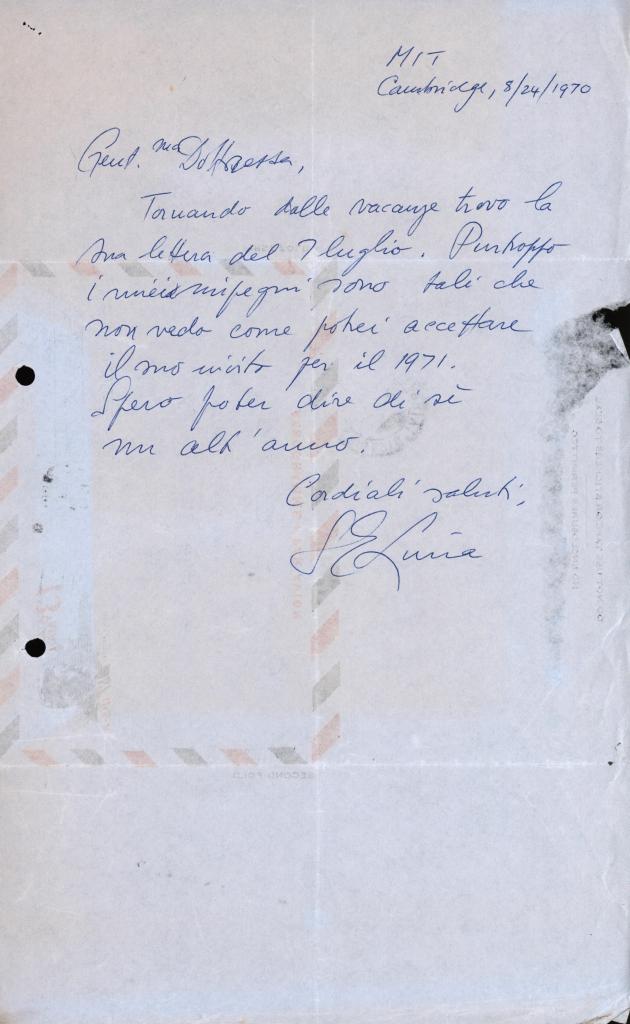 MIT
Cambridge, 8/24/1970
Gent.ma Dottoressa,
Tornando dalle vacanze trovo la
sua lettera del 7 luglio. Purtroppo
i miei impegni sono tali che
non vedo come potrei accettare
il suo invito per il 1971.
Spero poter dire di sì
un alt'anno.
Cordiali saluti,
SELuria
SECOND FOLD